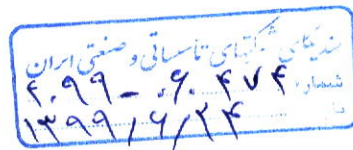 سندیکای شرکتهای تاسیساتی و صنعتی ایران
شماره: ۴۰۹۹-۰۶۰۴۷۴
۱۳۹۹/۶/۲۴